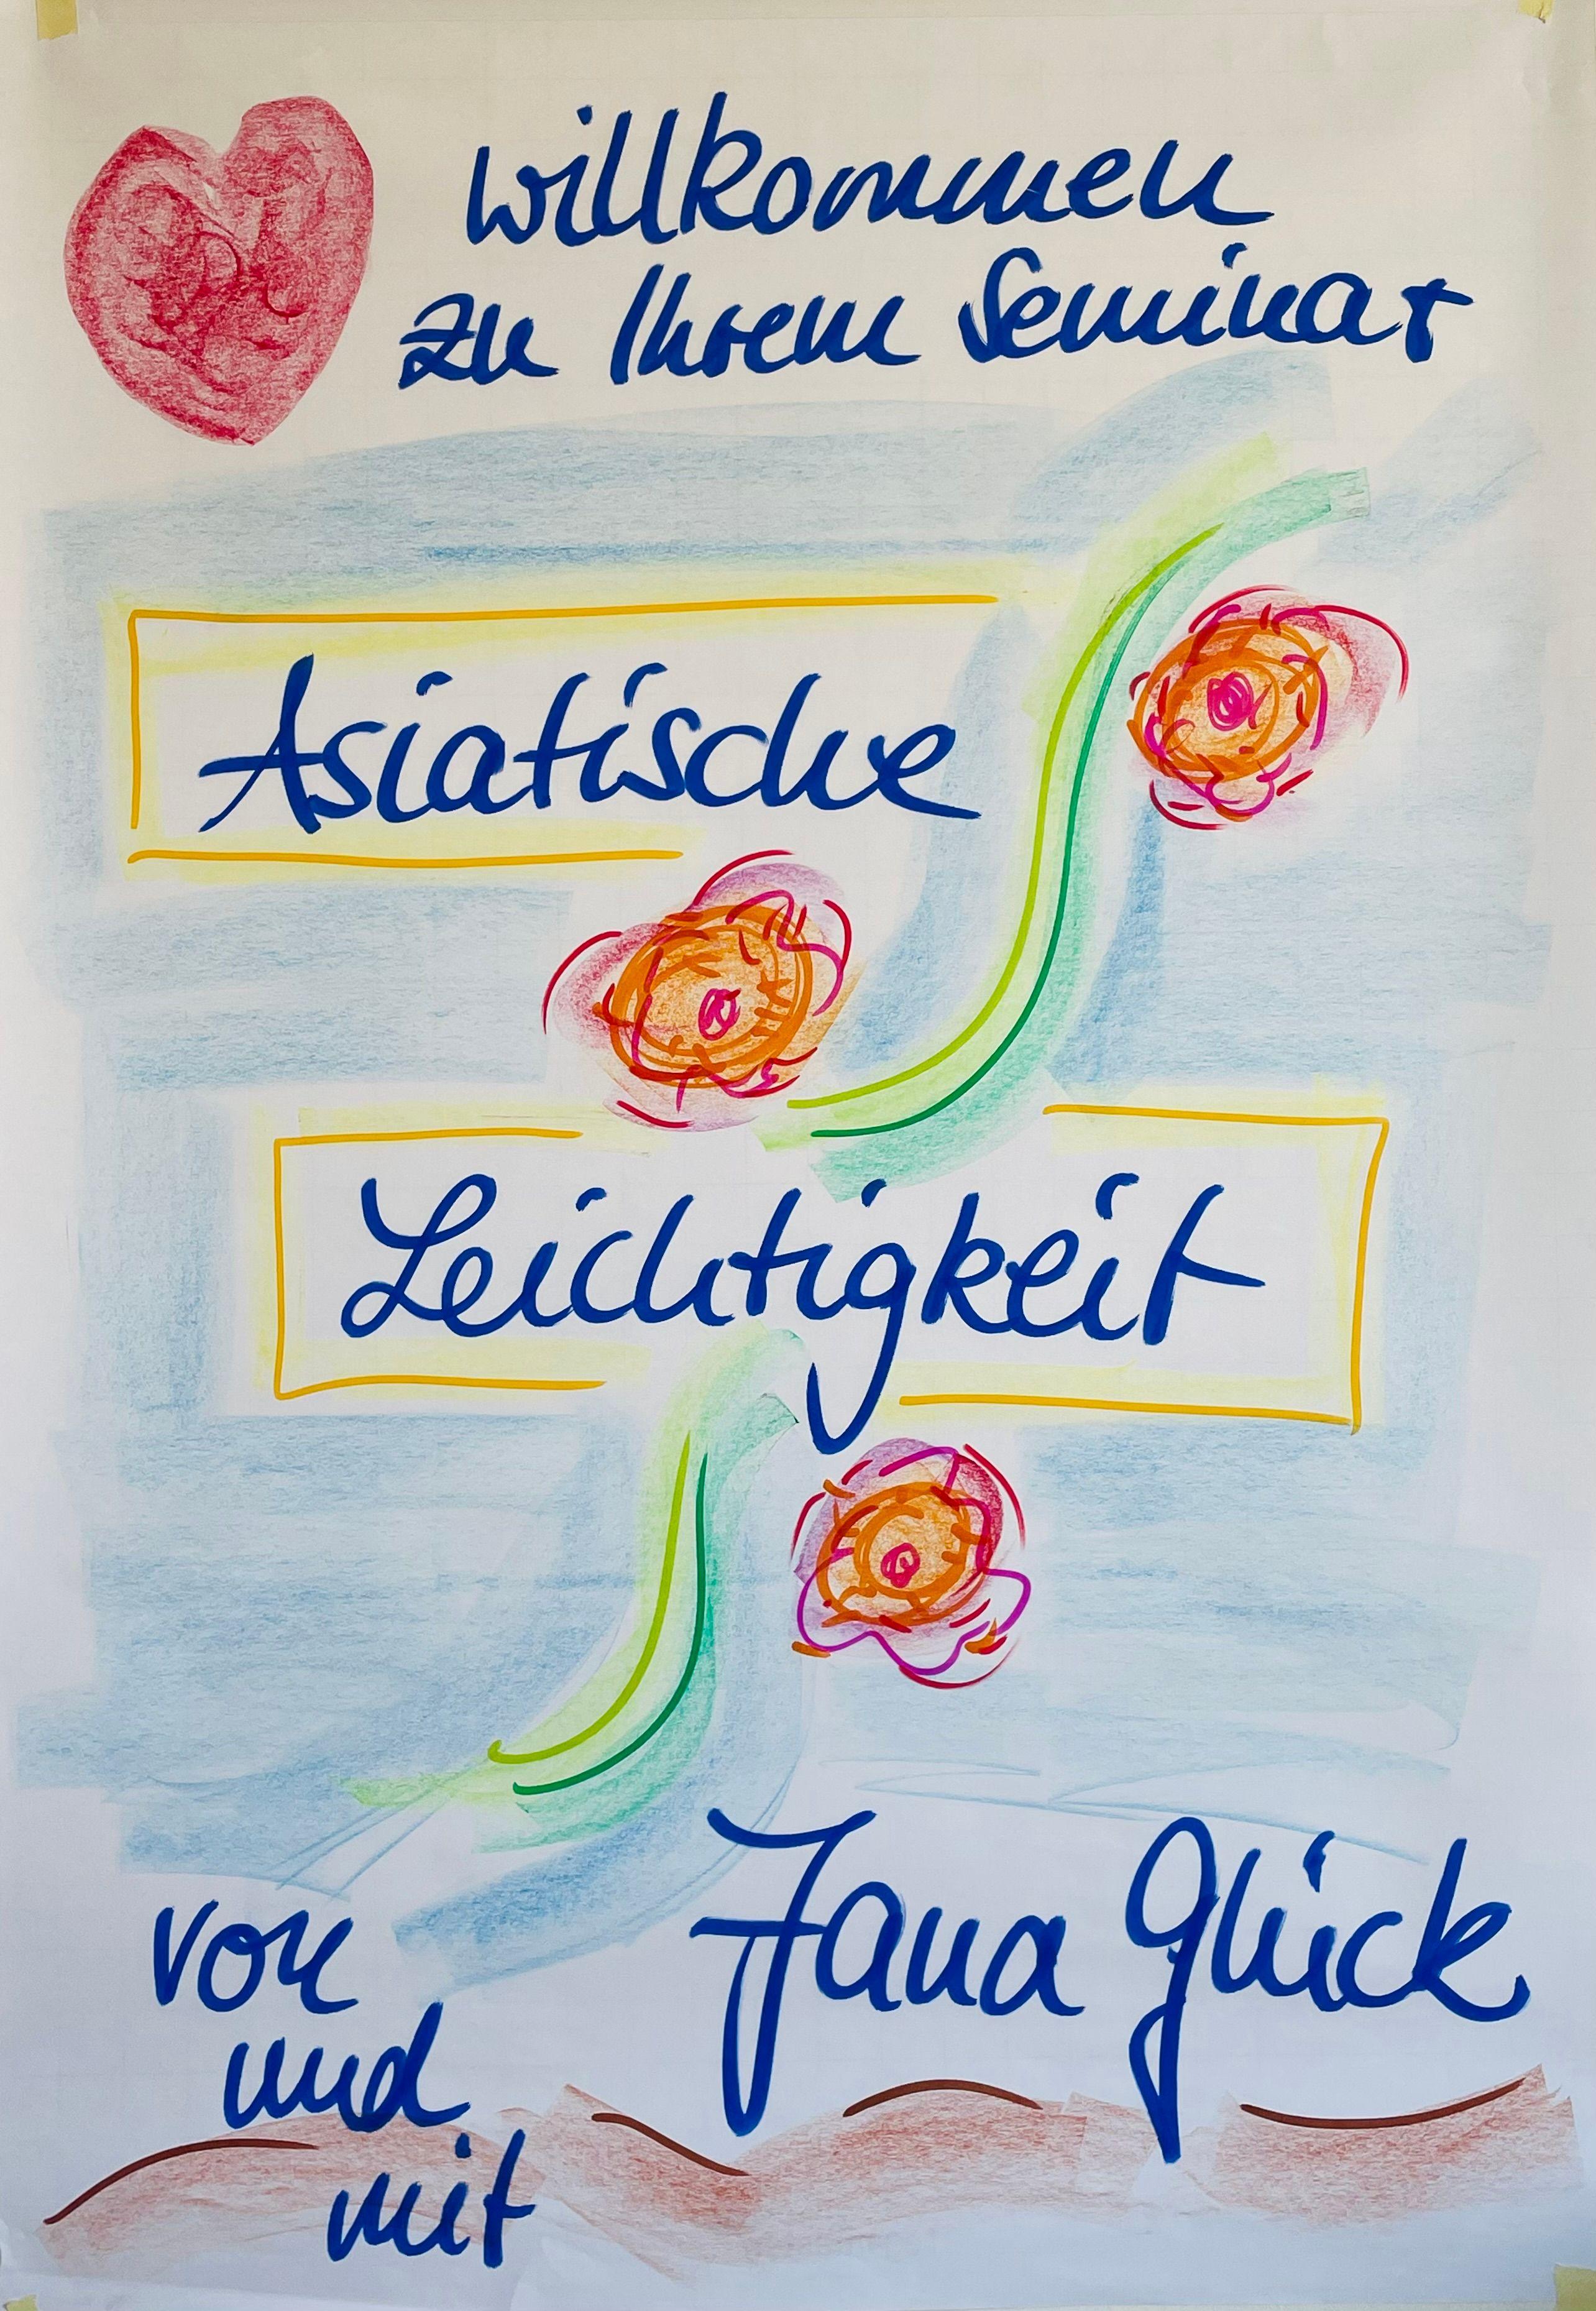 willkommen
zu Ihrem Seminar
Asiatische
Leichtigkeit
von
und
mit
Jana Glück